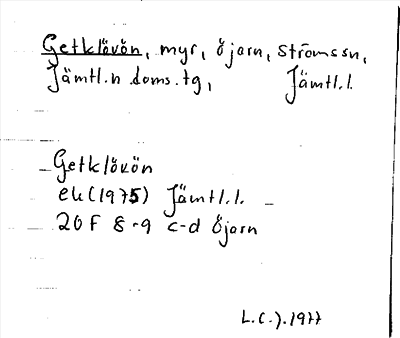 Getklövön, myr, Öjarn, Ströms sn,
Jämtl.n doms.tg, Jämtl.l.
Getklövön
ek (1975) Jämtl.l.
20 F 8-9 c-d Öjarn
L.C.J. 1977